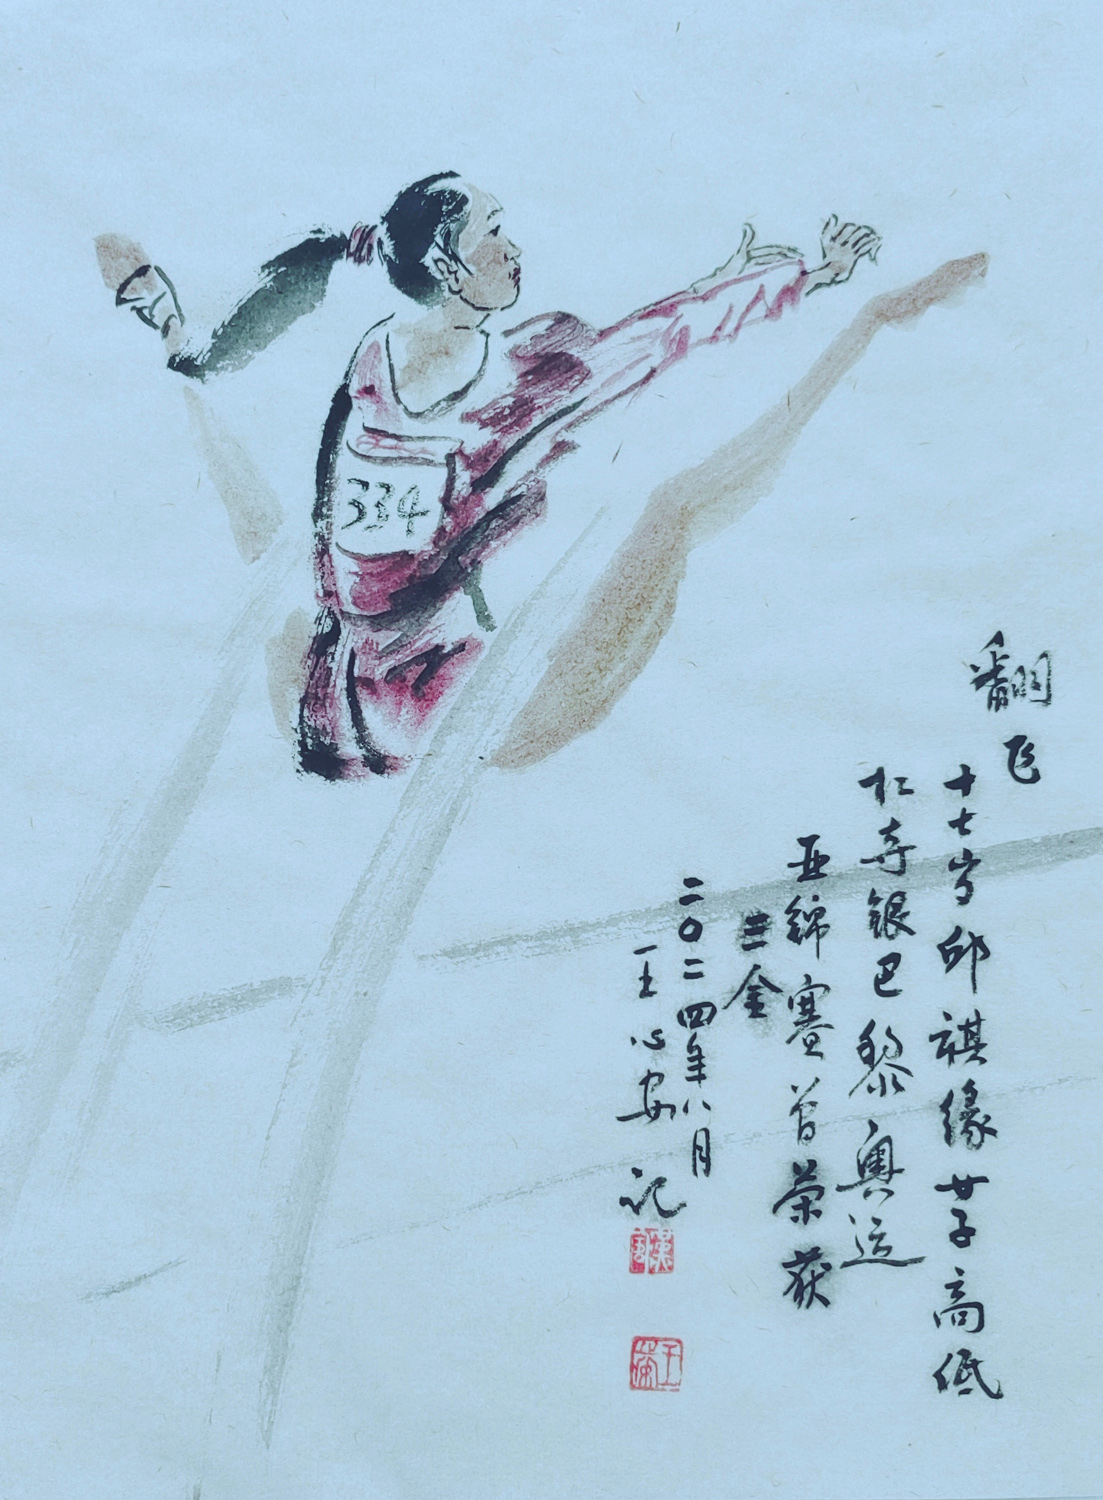 334
翻飞
十七岁邱祺缘女子高低
杠夺银巴黎奥运
亚锦赛曾荣获
三金
二〇二四年八月
王心安 记